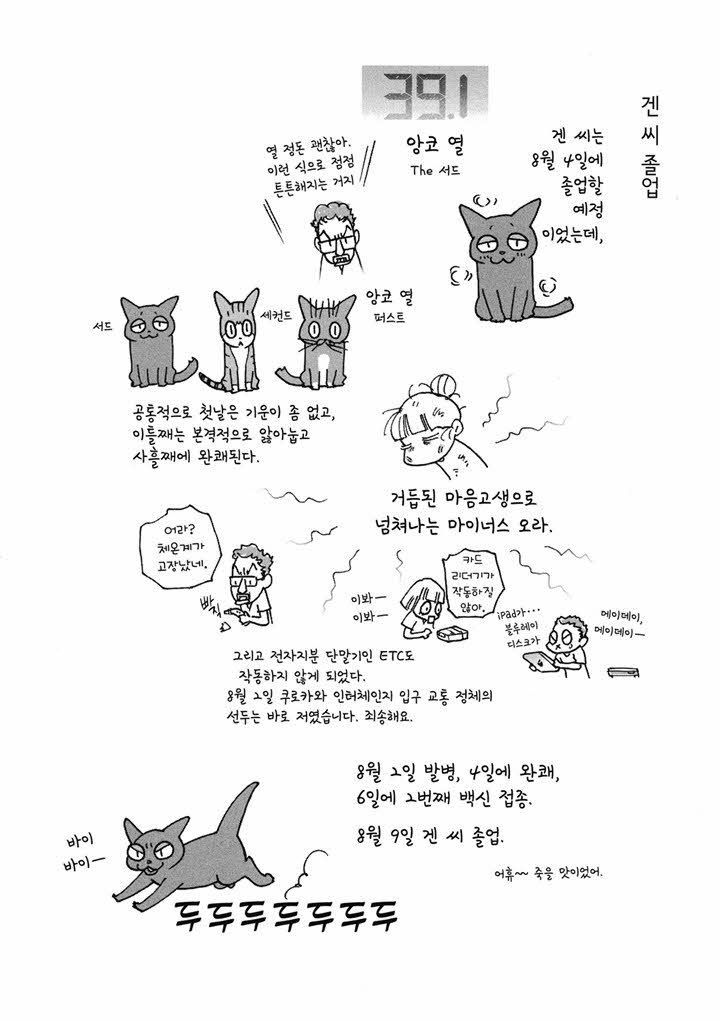 겐 씨 졸업
39.1
겐 씨는
8월 4일에
졸업할
예정
이었는데,
앙코 열
The 서드
열 정돈 괜찮아.
이런 식으로 점점
튼튼해지는 거지
앙코 열
퍼스트
세컨드
서드
공통적으로 첫날은 기운이 좀 없고,
이틀째는 본격적으로 앓아눕고
사흘째에 완쾌된다.
거듭된 마음고생으로
넘쳐나는 마이너스 오라.
어라?
체온계가
고장났네.
빠직
카드
리더기가
작동하질
않아.
이봐—
이봐—
iPad가…
블루레이
디스크가
메이데이,
메이데이—
그리고 전자지분 단말기인 ETC도
작동하지 않게 되었다.
8월 2일 쿠로카와 인터체인지 입구 교통 정체의
선두는 바로 저였습니다. 죄송해요.
8월 2일 발병, 4일에 완쾌,
6일에 2번째 백신 접종.
8월 9일 겐 씨 졸업.
어휴~~ 죽을 맛이었어.
바이
바이—
두두두두두두두